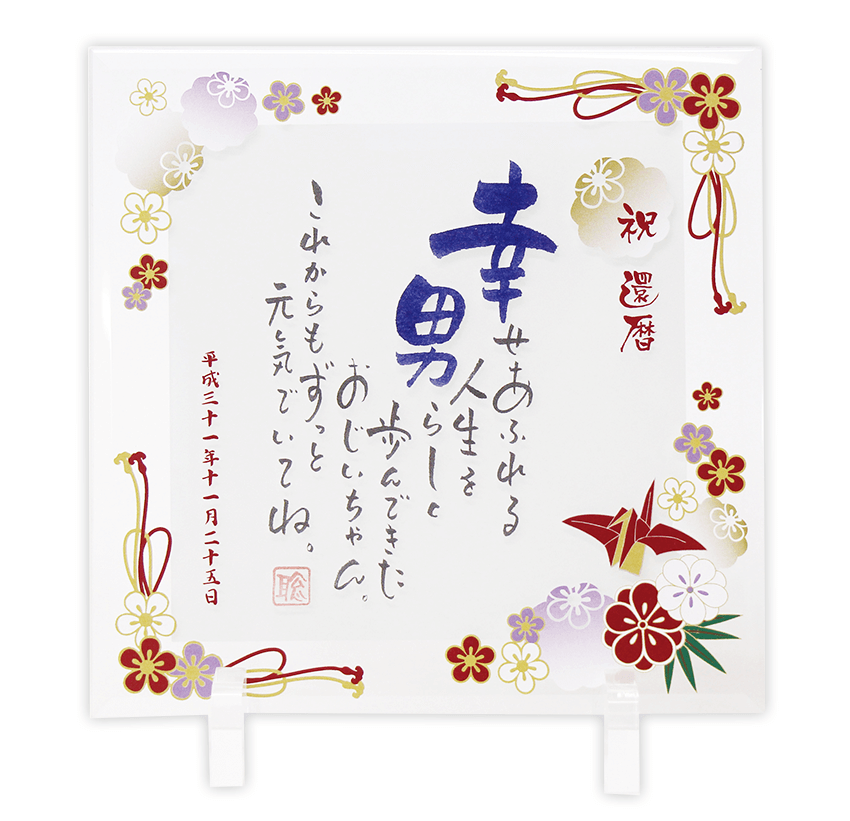 祝 還暦
幸せあふれる
人生を
男らしと
歩んできた
おじいちゃん。
これからもずっと
元気でいてね。
聡
平成三十一年十一月二十五日